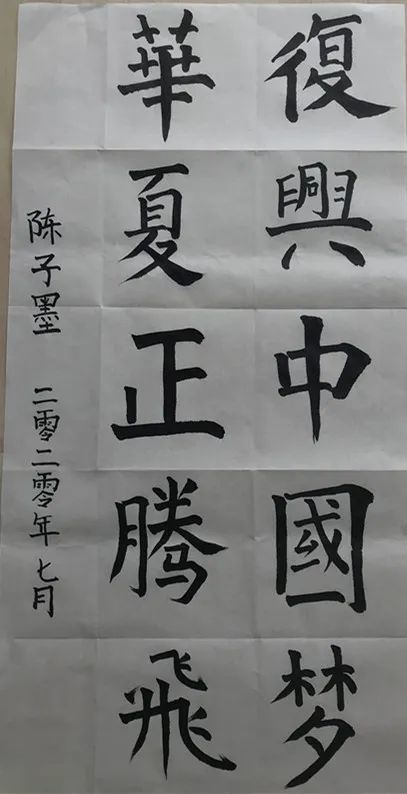 復興中國梦
華夏正腾飛
陈子墨 二零二零年七月